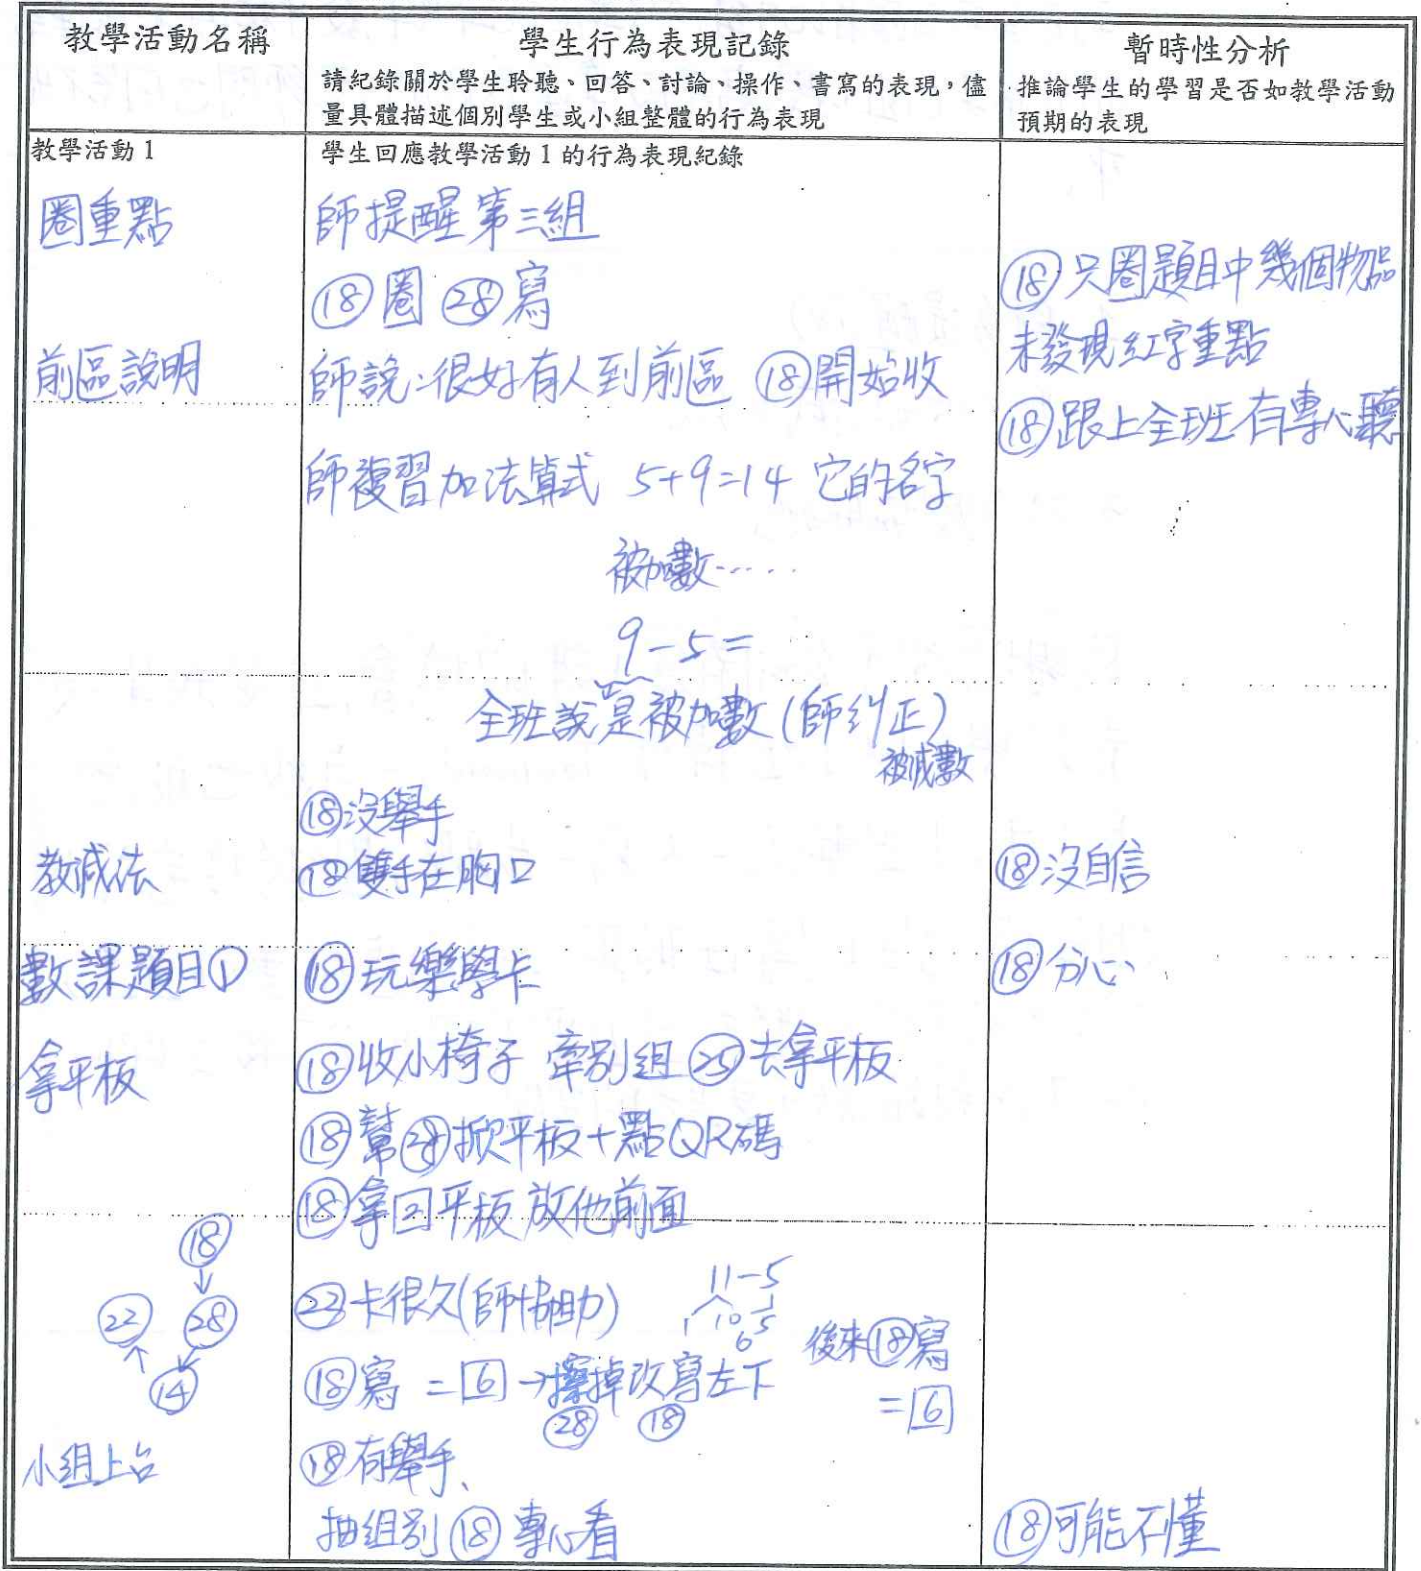 教學活動名稱
學生行為表現記錄
請紀錄關於學生聆聽、回答、討論、操作、書寫的表現，儘
量具體描述個別學生或小組整體的行為表現
暫時性分析
推論學生的學習是否如教學活動
預期的表現
教學活動 1
學生回應教學活動 1 的行為表現紀錄
圈重點
師提醒第三組
⑱圈 ㉘寫
⑱只圈題目中幾個物品
未發現紅字重點
前區說明
師說:很好有人到前區 ⑱開始收
⑱跟上全班有專心聽
師複習加法算式 5+9=14 它的名字
被加數……
9-5=
全班說是被加數(師糾正)
被減數
⑱沒舉手
教減法
⑱雙手在胸口
⑱沒自信
數課題目①
⑱玩樂學卡
⑱分心
拿平板
⑱收小椅子 牽別組㉕去拿平板
⑱幫㉘掀平板+點QR碼
⑱拿回平板 放他前面
⑱
㉒ ㉘
⑭
㉒卡很久(師協助)
11-5
1 10 5
6
⑱寫 =6→擦掉改寫左下
㉘ ⑱
後來⑱寫
=6
小組上台
⑱有舉手、
抽組別⑱專心看
⑱可能不懂